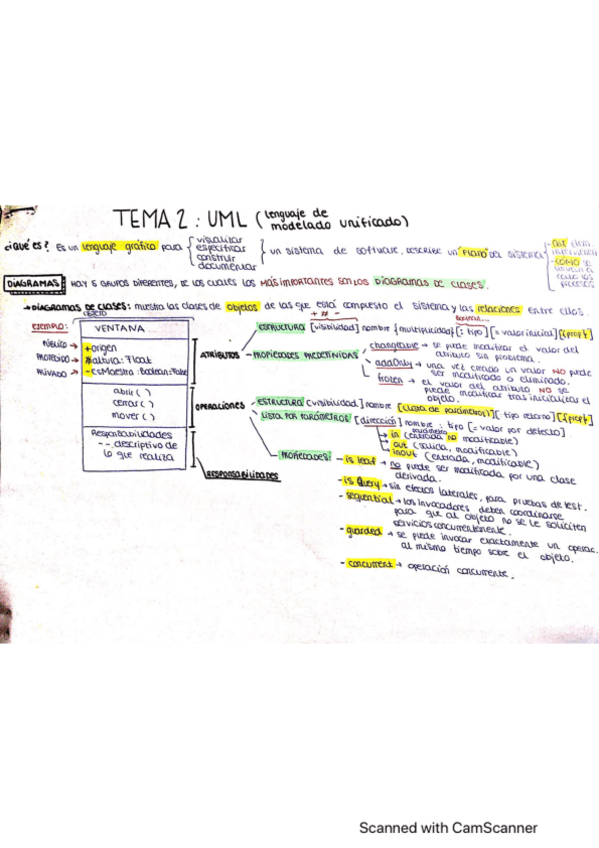 TEMA 2 : UML (lenguaje de modelado unificado)
¿Qué es? Es un lenguaje gráfico para { visualizar
especificar
construir
documentar } un sistema de software, describe un "PLANO" del sistema
- CÓMO se
procesos
DIAGRAMAS: HAY 5 GRUPOS DIFERENTES, DE LOS CUALES LOS MÁS IMPORTANTES SON LOS DIAGRAMAS DE CLASES.
→ DIAGRAMAS DE CLASES: muestra las clases de objetos de las que está compuesto el sistema y las relaciones entre ellos.
EJEMPLO:
OBJETO
VENTANA
PÚBLICO → +origen
PROTEGIDO → #altura: Float
PRIVADO → -esMaestra: Boolean=False
abrir( )
cerrar( )
mover( )
Responsabilidades
-- descriptivo de
lo que realiza
ATRIBUTOS
+ # -
- ESTRUCTURA [visibilidad] nombre [multiplicidad] [: tipo] [= valor inicial] [{prop}]
- PROPIEDADES PREDEFINIDAS
changeable → se puede modificar el valor del
atributo sin problema.
addOnly → una vez creado un valor NO puede
ser modificado o eliminado.
frozen → el valor del atributo NO se
puede modificar tras inicializar el
objeto.
OPERACIONES
- ESTRUCTURA [visibilidad] nombre [(lista de parámetros)] [: tipo retorno] [{prop}]
LISTA POR PARÁMETROS [dirección] nombre : tipo [= valor por defecto]
parámetro
in (entrada no modificable)
out (salida, modificable)
inout (entrada, modificable)
PROPIEDADES: - is leaf → no puede ser modificada por una clase
derivada.
- is Query → sin efectos laterales, para pruebas de test.
- sequential → los invocadores deben coordinarse
para que al objeto no se le soliciten
servicios concurrentemente.
- guarded → se puede invocar exactamente un operac.
al mismo tiempo sobre el objeto.
- concurrent → operación concurrente.
RESPONSABILIDADES
Scanned with CamScanner